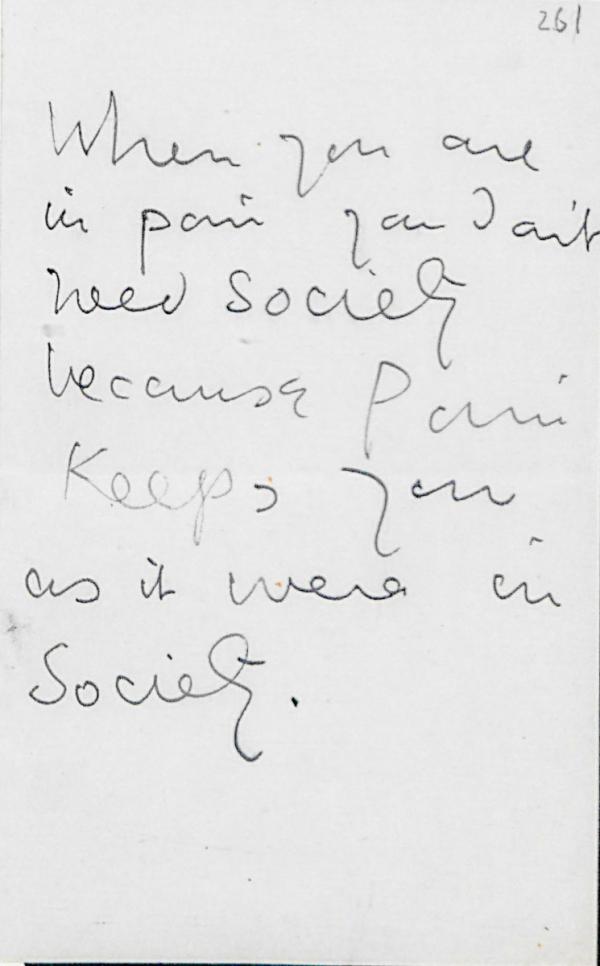 261
When you are
in pain you don't
need Society
because Pain
Keeps you
as it were in
Society.